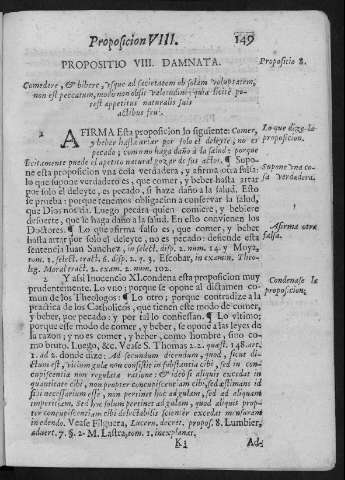 Proposicion VIII.
149
PROPOSITIO VIII. DAMNATA.
Propositio 8.
Comedere, & bibere, usque ad satietatem ob solam voluptatem,
non est peccatum, modo non obsit valetudini; quia licitè po-
test appetitus naturalis suis
actibus frui.
1 AFIRMA Esta proposicion lo siguiente: Comer,
y beber hasta artar por solo el deleyte, no es
pecado; como no haga daño à la salud: porque
licitamente puede el apetito natural gozar de sus actos. ¶ Supo-
ne esta proposicion vna cosa verdadera, y afirma otra falsa:
lo que supone verdadero es, que comer, y beber hasta artar
por solo el deleyte, es pecado, si haze daño à la salud. Esto
se prueba: porque tenemos obligacion à conservar la salud,
que Dios nos dà. Luego pecarà quien comiere, y bebiere
de suerte, que le haga daño à la salud. En esto convienen los
Doctores. ¶ Lo que afirma falso es, que comer, y beber
hasta artar por solo el deleyte, no es pecado: defiende esta
sentencia Juan Sanchez, in select. disp. 2. num. 24. y Moya,
tom. 1. select. tract. 6. disp. 2. q. 3. Escobar, in examin. Theo-
log. Moral tract. 2. exam. 2. num. 102.
Lo que dize la
proposicion.
Supone vna co-
sa verdadera.
Afirma otra
falsa.
2 Y assi Inocencio XI. condena esta proposicion muy
prudentemente. Lo vno: porque se opone al dictamen co-
mun de los Theologos: ¶ Lo otro; porque contradize à la
practica de los Catholicos, que tienen este modo de comer,
y beber, por pecado: y por tal lo confiessan: ¶ Lo vltimo;
porque esse modo de comer, y beber, se opone à las leyes de
la razon; y no es comer, y beber, como hombre, sino co-
mo bruto. Luego, &c. Vease S. Thomas 2. 2. quæst. 148. art.
1. ad 2. donde dize: Ad secundum dicendum, quod, sicut di-
ctum est, vitium gulæ non consistit in substantia cibi, sed in con-
cupiscentia non regulata ratione: & ideò si aliquis excedat in
quantitate cibi, non propter concupiscentiam cibi, sed æstimans id
sibi necessarium esse, non pertinet hoc ad gulam, sed ad aliquam
imperitiam. Sed hoc solum pertinet ad gulam, quod aliquis prop-
ter concupiscentiam cibi delectabilis scienter excedat mensuram
in edendo. Vease Filguera, Lucern. decret. propos. 8. Lumbier,
advert. 7. §. 2. M. Lastra, tom. 1. in explanat.
Condenase la
proposicion;
Ad-